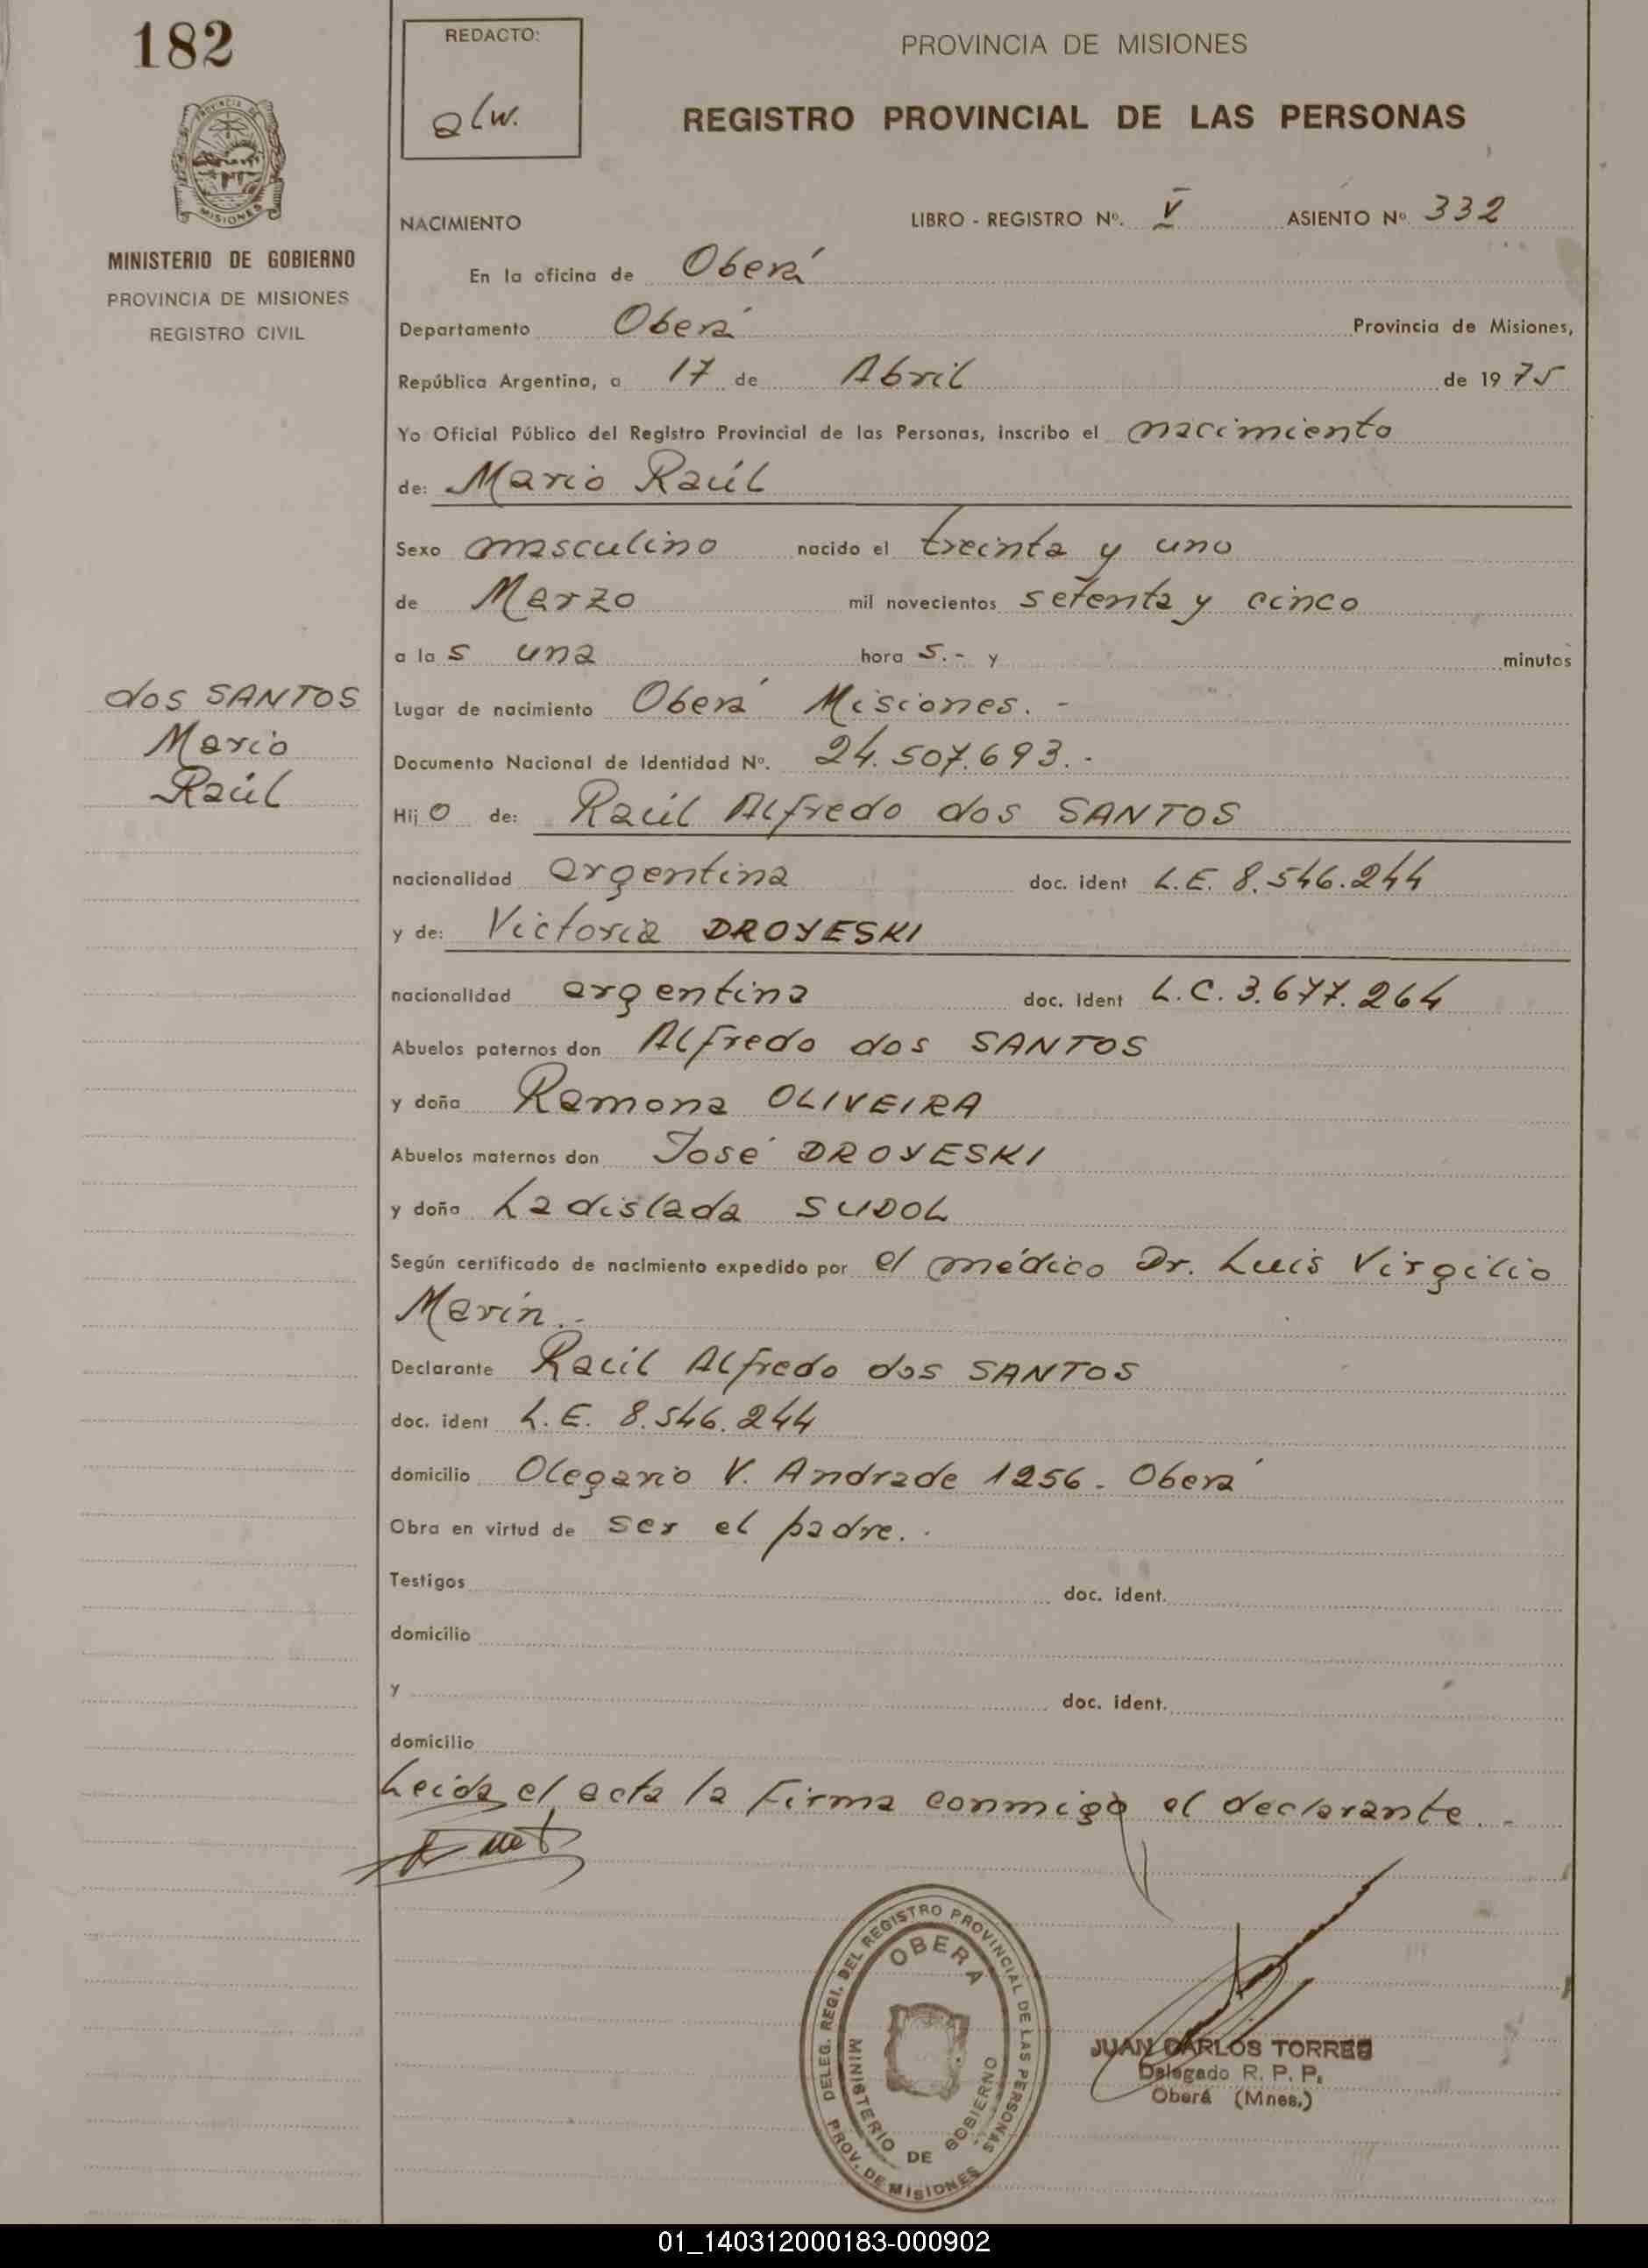 182
REDACTO:
PROVINCIA DE MISIONES
REGISTRO PROVINCIAL DE LAS PERSONAS
PROVINCIA DE
MISIONES
MINISTERIO DE GOBIERNO
PROVINCIA DE MISIONES
REGISTRO CIVIL
NACIMIENTO LIBRO - REGISTRO Nº. V ASIENTO Nº 332
En la oficina de Oberá
Departamento Oberá Provincia de Misiones,
República Argentina, a 17 de Abril de 19 75
Yo Oficial Público del Registro Provincial de las Personas, inscribo el nacimiento
de: Mario Raúl
Sexo masculino nacido el treinta y uno
de Marzo mil novecientos setenta y cinco
a la s una hora s.- y minutos
dos SANTOS
Mario
Raúl
Lugar de nacimiento Oberá Misiones. -
Documento Nacional de Identidad Nº. 24.507.693.-
Hij o de: Raúl Alfredo dos SANTOS
nacionalidad argentina doc. ident L.E. 8.546.244
y de: Victoria DROYESKI
nacionalidad argentina doc. ident L.C. 3.677.264
Abuelos paternos don Alfredo dos SANTOS
y doña Ramona OLIVEIRA
Abuelos maternos don José DROYESKI
y doña Ladislada SUDOL
Según certificado de nacimiento expedido por el médico Dr. Luis Virgilio
Marin.-
Declarante Raúl Alfredo dos SANTOS
doc. ident L.E. 8.546.244
domicilio Olegario V. Andrade 1256. Oberá
Obra en virtud de ser el padre. .
Testigos doc. ident.
domicilio
y doc. ident.
domicilio
Leida el acta la firma conmigo el declarante. -
DELEG. REGI. DEL REGISTRO PROVINCIAL DE LAS PERSONAS
OBERA
MINISTERIO DE GOBIERNO
PROV. DE MISIONES
JUAN CARLOS TORRES
Delegado R. P. P.
Oberá (Mnes.)
01_140312000183-000902